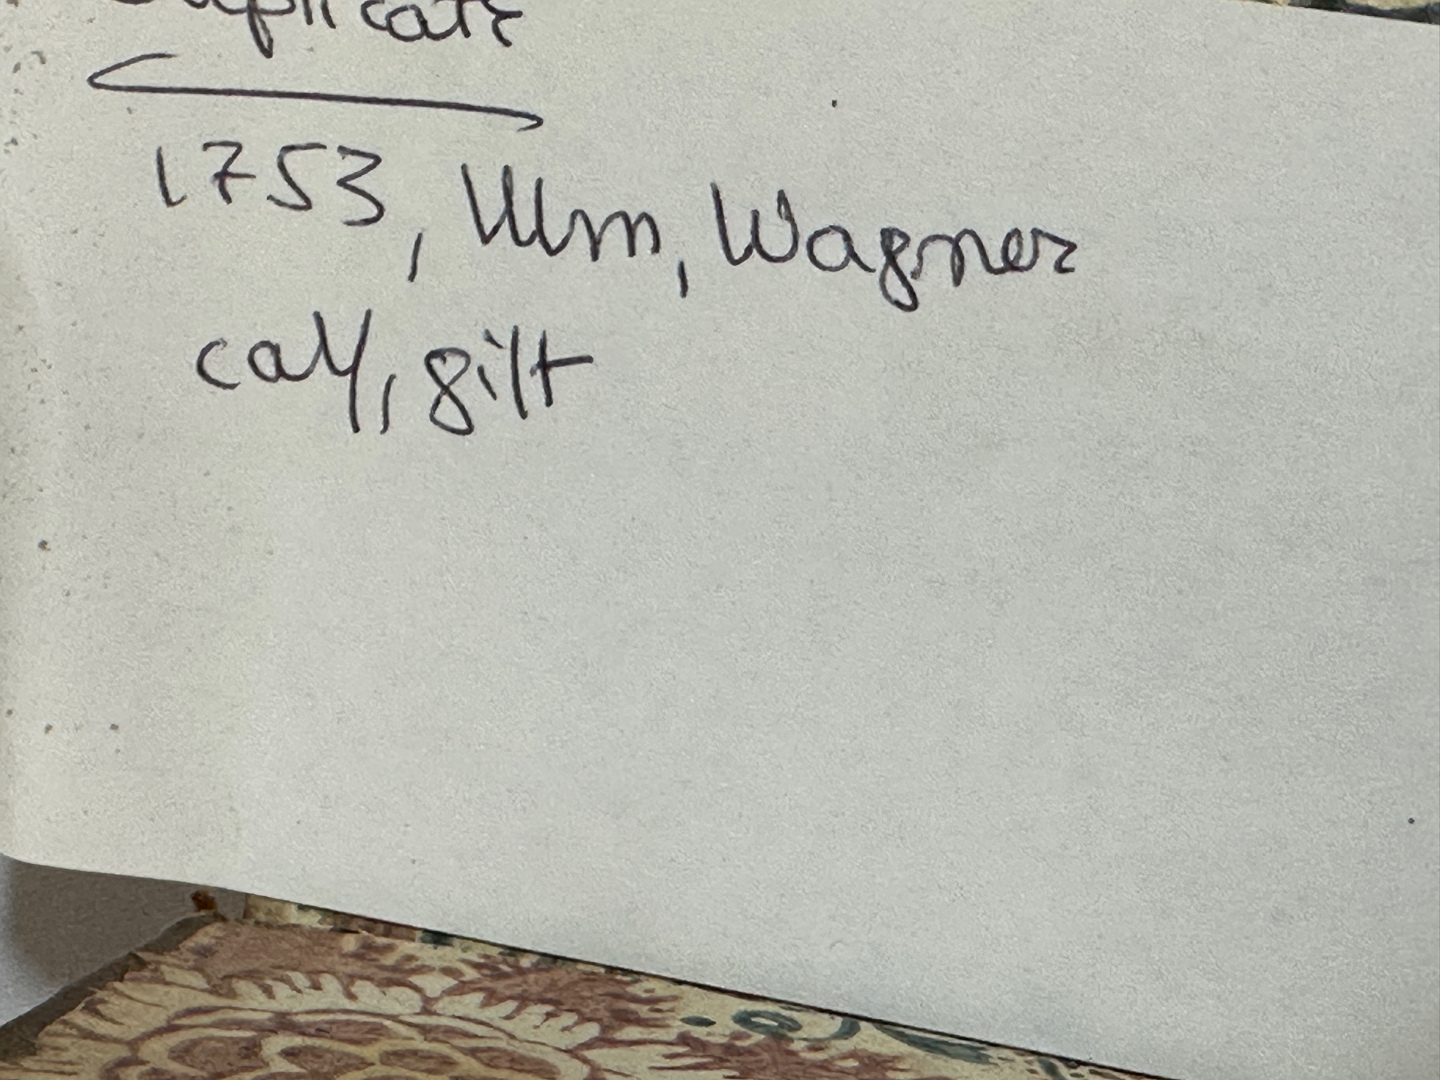 Duplicate
1753, Ulm, Wagner
calf, gilt